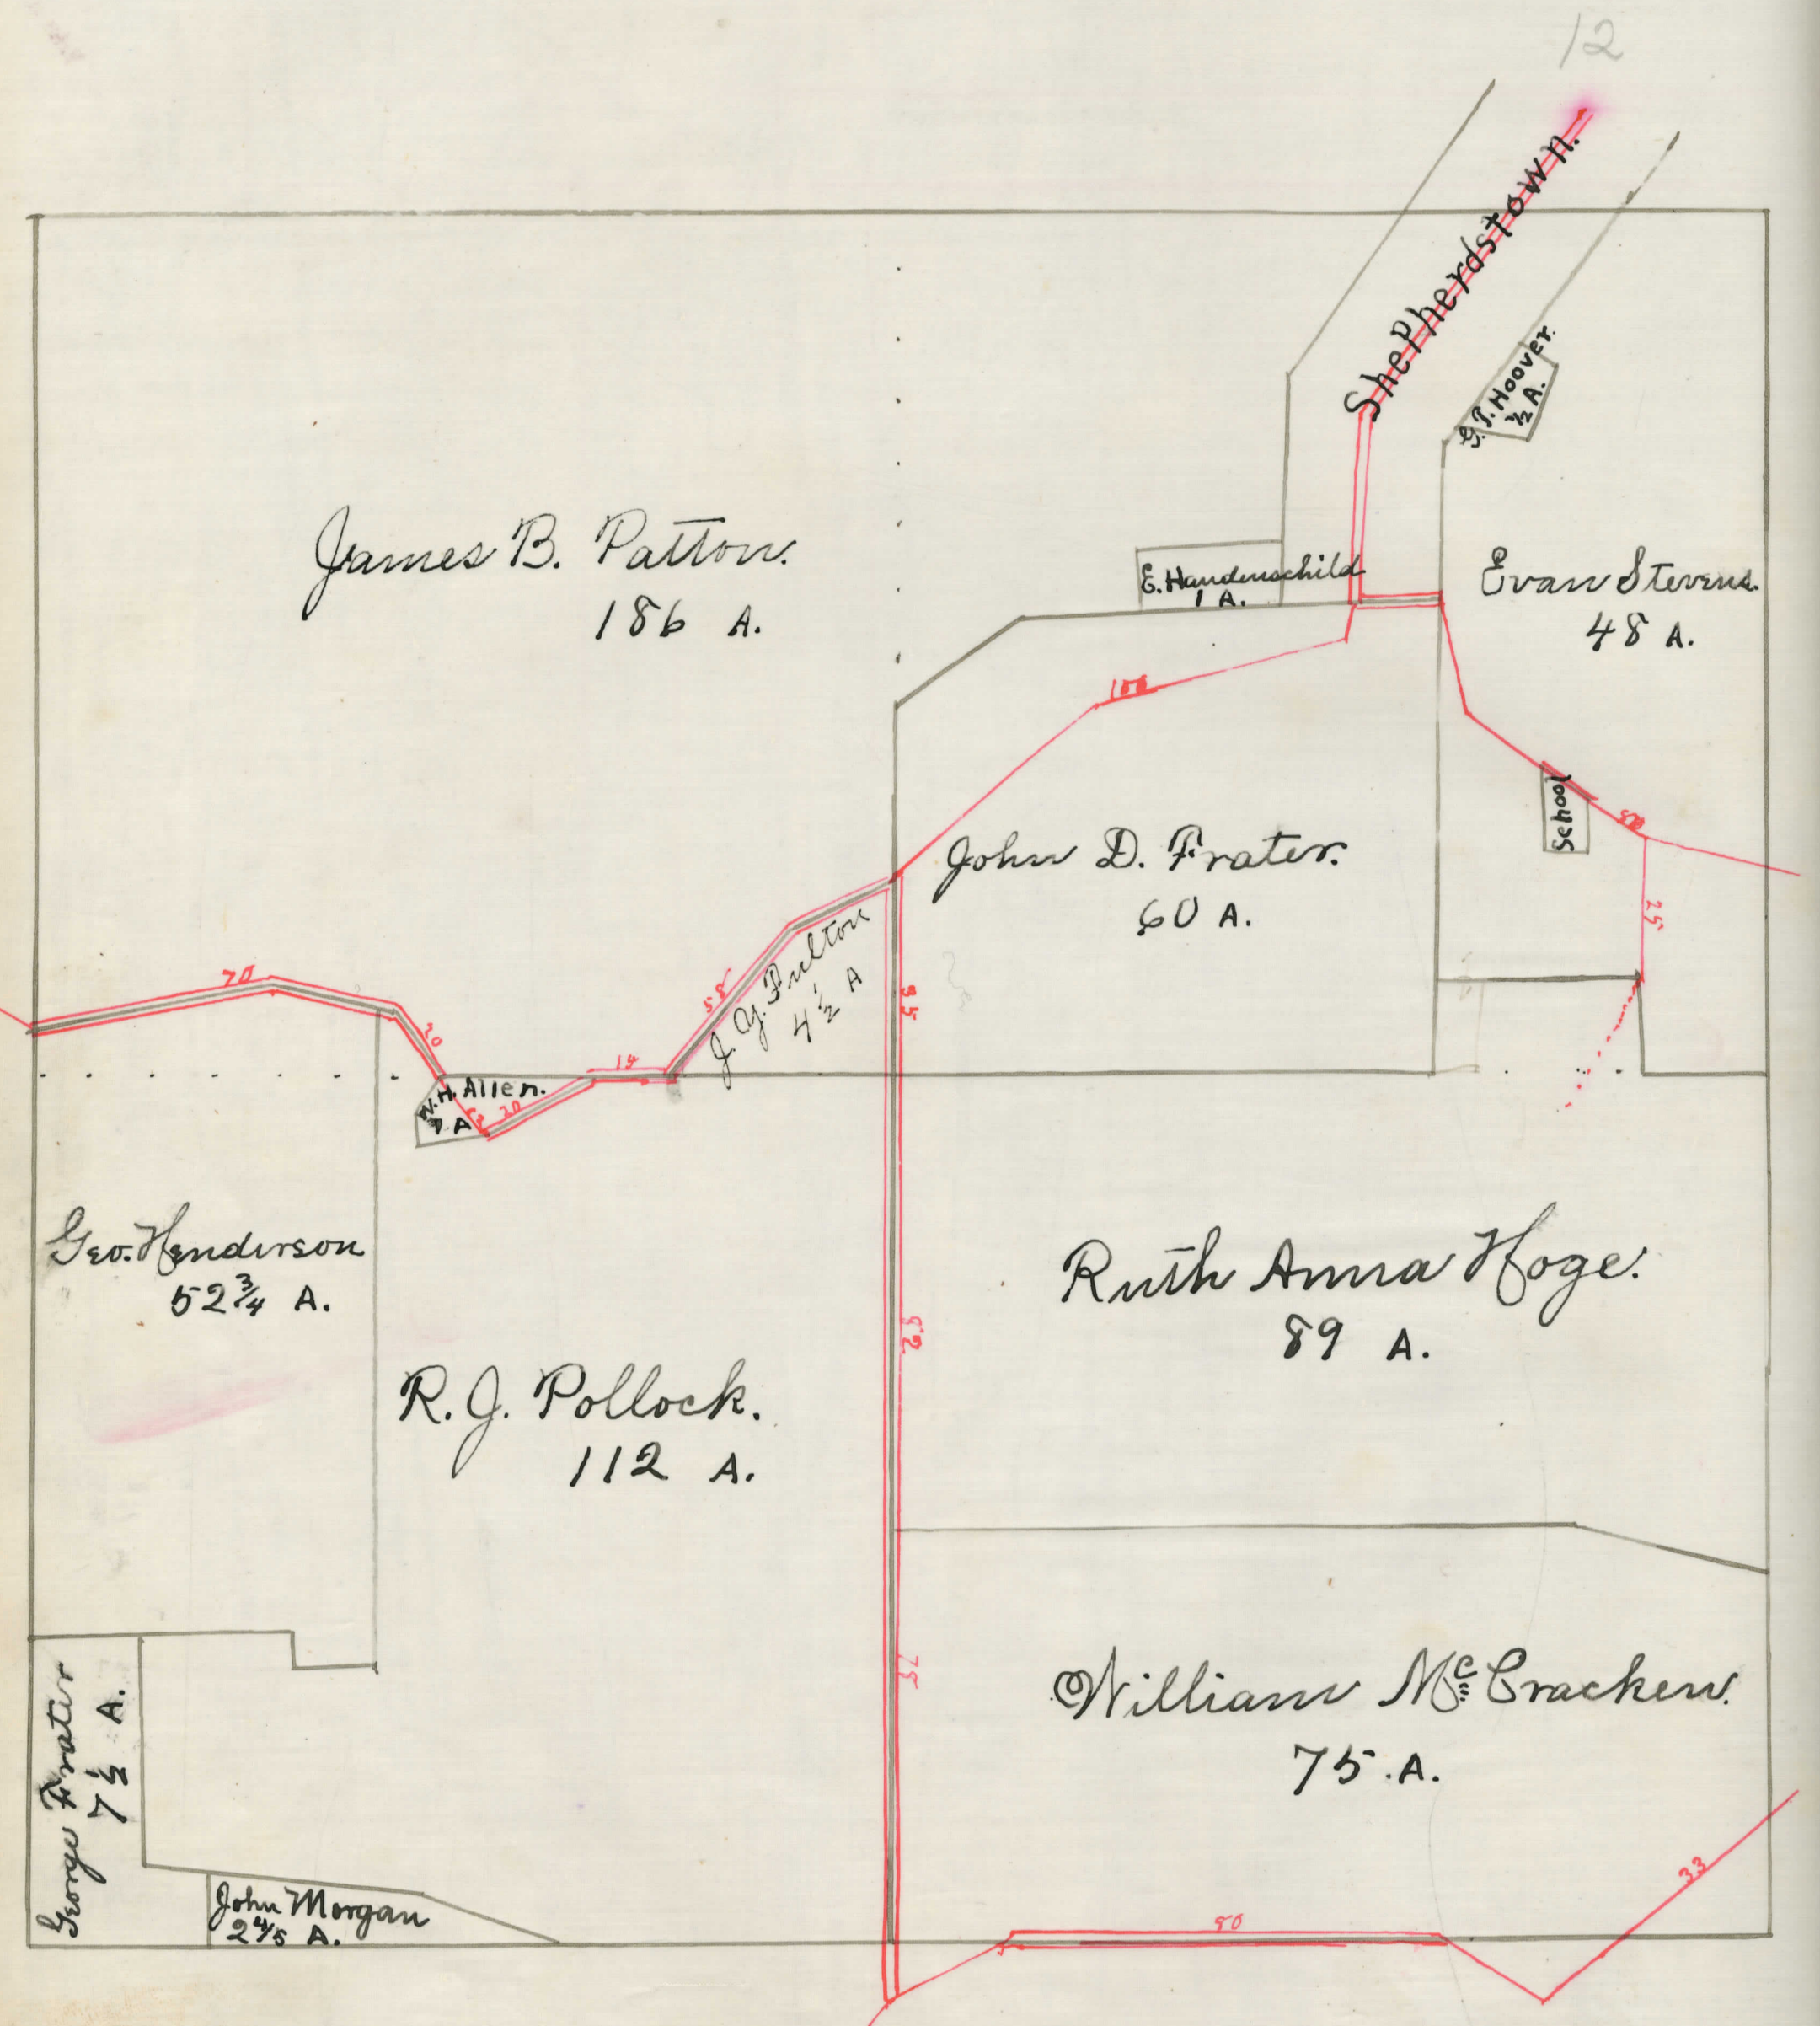 12
Shepherdstown.
G. T. Hoover.
1/2 A.
James B. Patton.
186 A.
E. Handenschild
1 A.
Evan Stevens.
48 A.
100
School
50
25
John D. Frater.
60 A.
J. Y. Fulton
4 1/2 A
58
35
70
20
14
W. H. Allen.
1 A
20
Geo. Henderson
52 3/4 A.
Ruth Anna Hoge.
89 A.
82
R. J. Pollock.
112 A.
75
William McCracken.
75. A.
George Frater
7 1/2 A.
John Morgan
2 4/5 A.
80
33